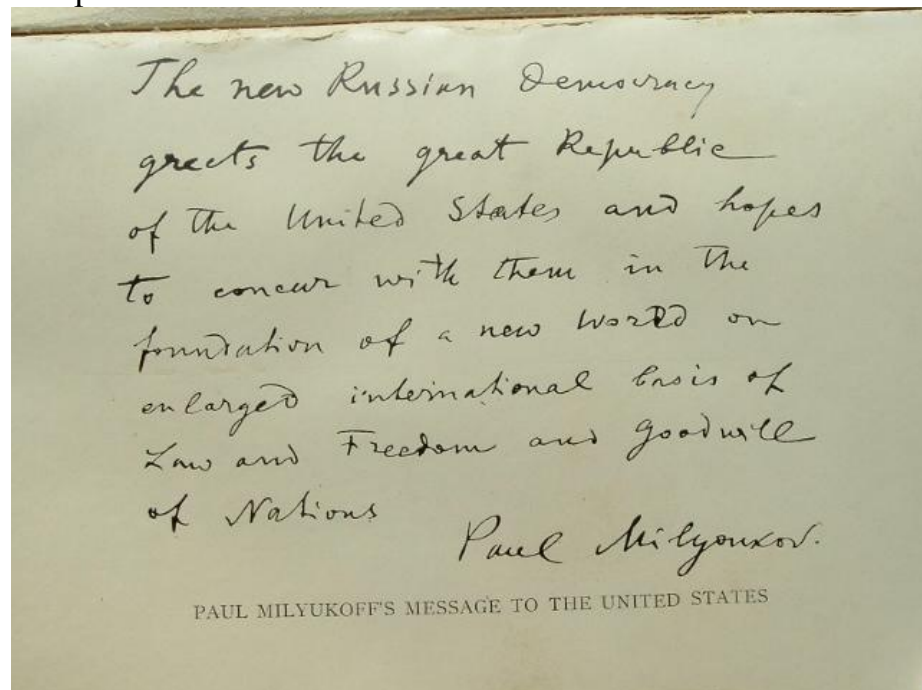 The new Russian Democracy
greets the great Republic
of the United States and hopes
to concur with them in the
foundation of a new World on
enlarged international basis of
Law and Freedom and Goodwill
of Nations
Paul Milyoukov.
PAUL MILYUKOFF'S MESSAGE TO THE UNITED STATES